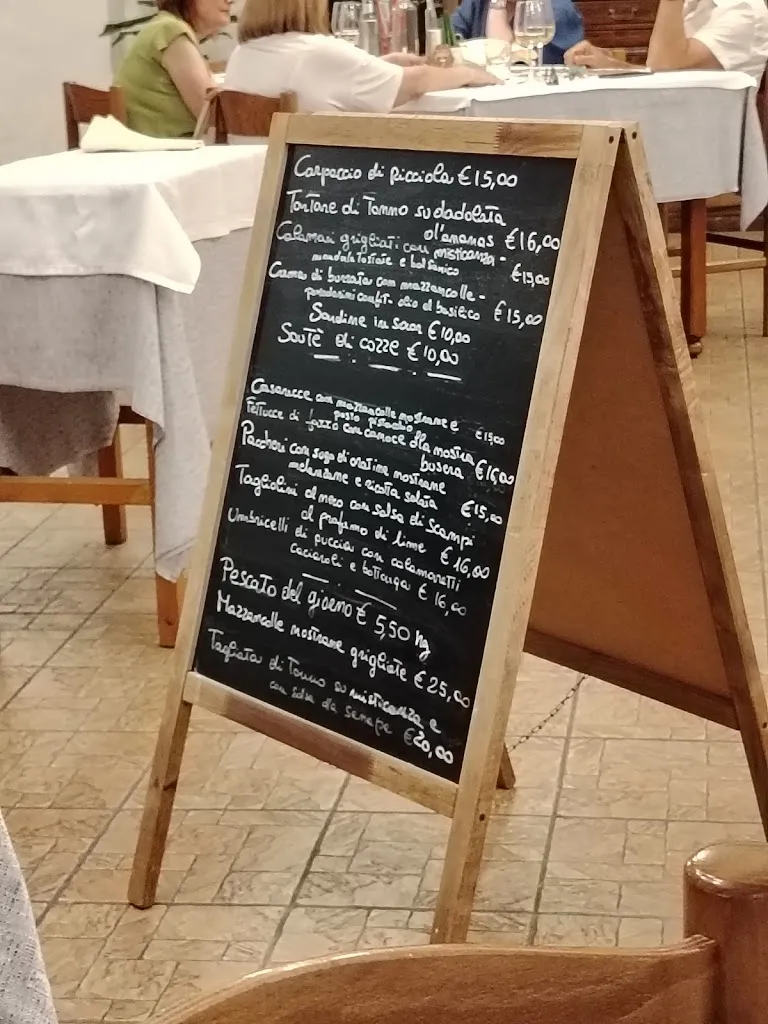 Carpaccio di ricciola €15,00
Tartare di Tonno su dadolata
d'ananas €16,00
Calamari grigliati con misticanza -
mandorle tostate e balsamico €13,00
Crema di burrata con mazzancolle -
pomodorini confit - olio al basilico €15,00
Sardine in saor €10,00
Soutè di cozze €10,00
Casarecce con mazzancolle nostrane e
pesto pistacchio €15,00
Fettucce di farro con canoce alla nostra
busera €16,00
Paccheri con sugo di oratine nostrane
melanzane e ricotta salata €15,00
Tagliolini al nero con salsa di scampi
al profumo di lime €16,00
Umbricelli di ciccia con calamaretti
cacioroli e bottarga €16,00
Pescato del giorno € 5,50 hg
Mazzancolle nostrane grigliate €25,00
Tagliata di Tonno su misticanza e
con salsa da senape €20,00